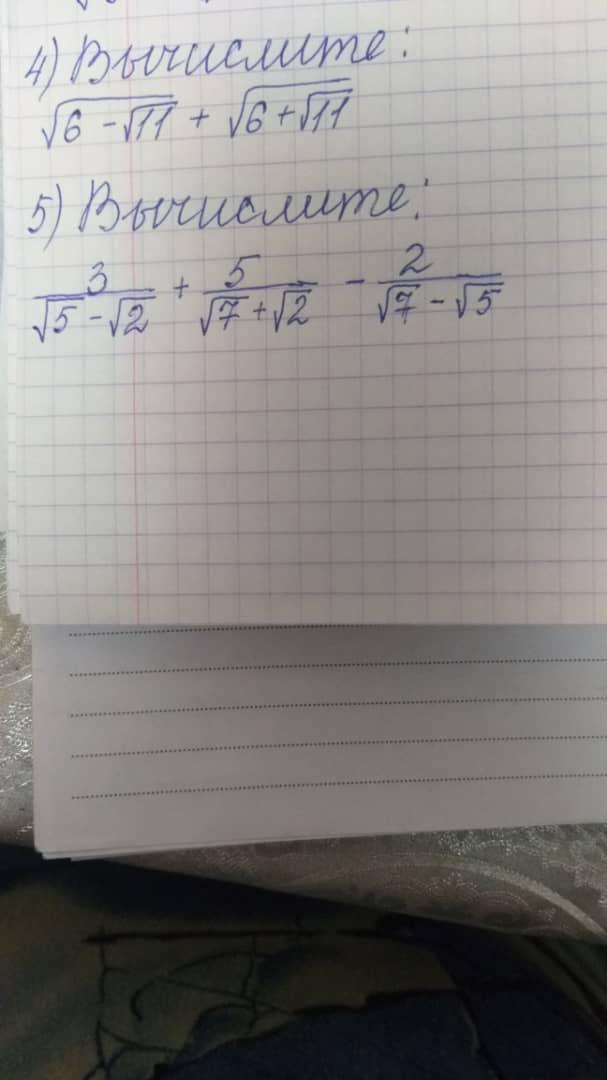 4) Вычислите:
√(6 - √11) + √(6 + √11)
5) Вычислите:
3/(√5 - √2) + 5/(√7 + √2) - 2/(√7 - √5)